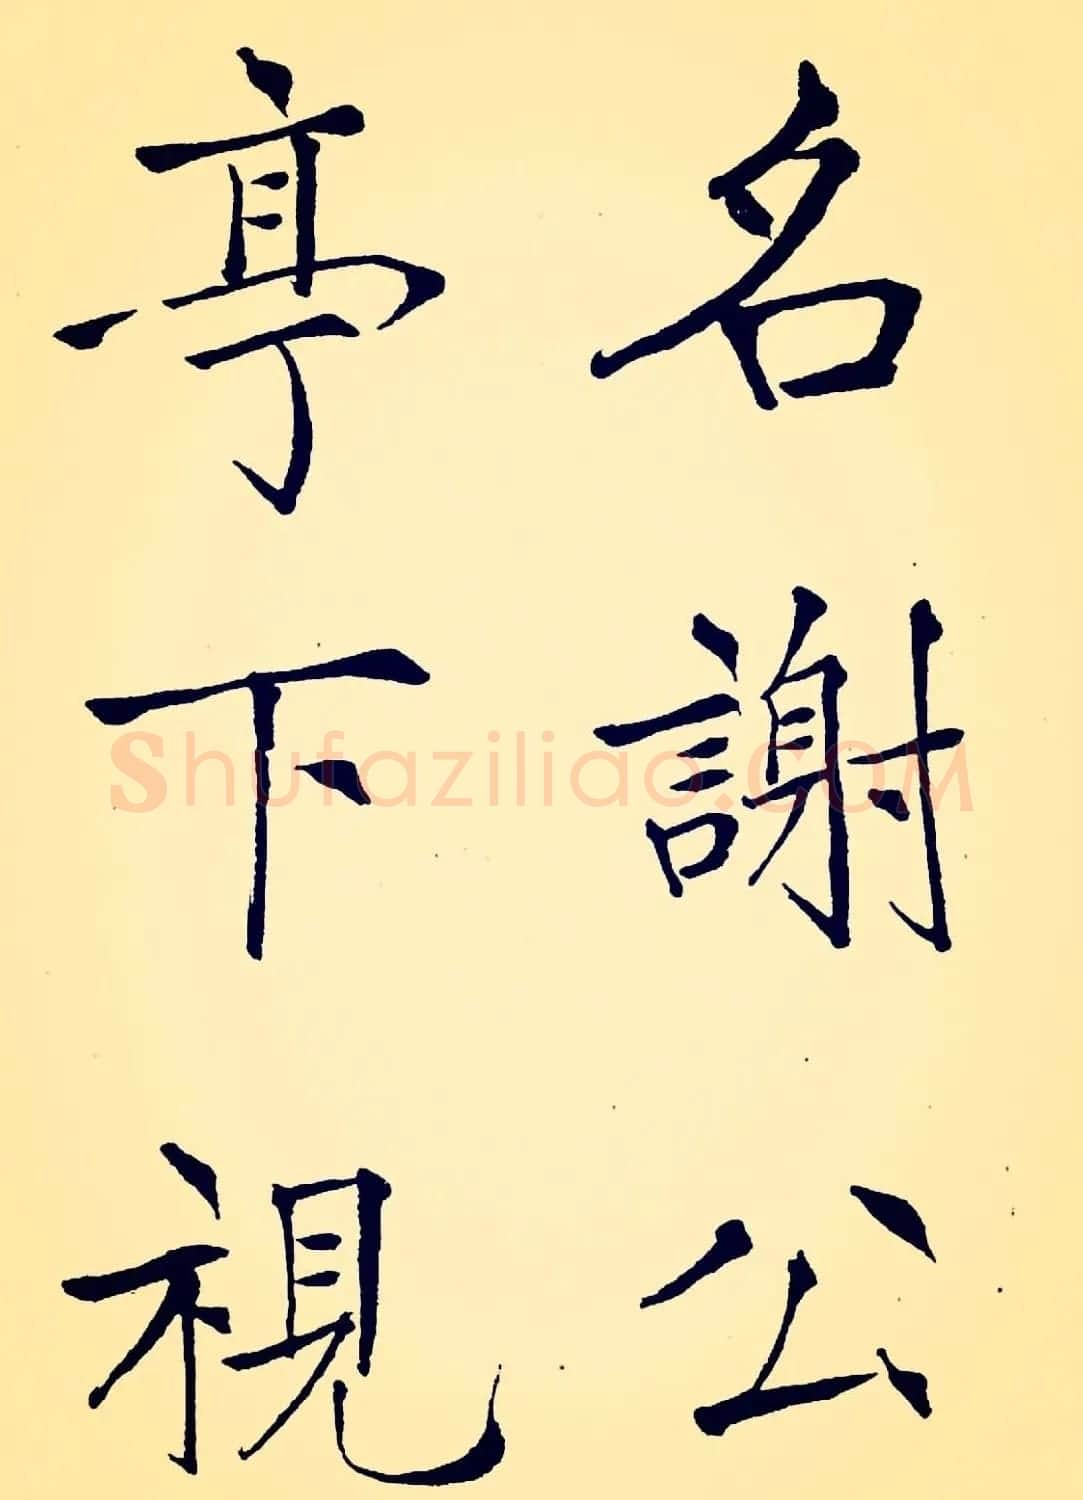 名謝公
亭下視
Shufaziliao.COM